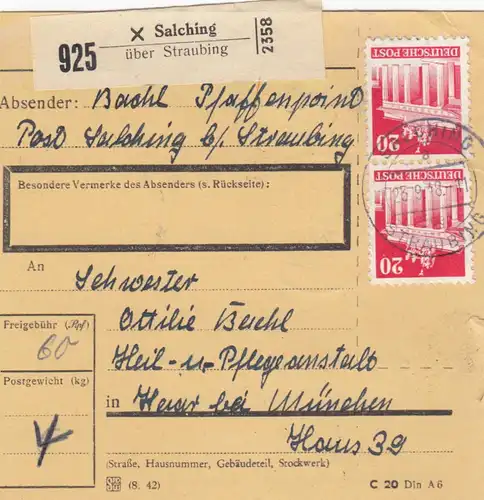 925
✕ Salching
über Straubing
2358
DEUTSCHE POST
20
DEUTSCHE POST
20
Absender: Bachl Pfaffenpoint
Post Salching b/ Straubing
Besondere Vermerke des Absenders (s. Rückseite):
An
Schwester
Ottilie Bachl
Heil- u- Pflegeanstalt
in Haar bei München
Haus 39
Freigebühr (Rpf)
60
Postgewicht (kg)
(Straße, Hausnummer, Gebäudeteil, Stockwerk)
(8. 42)
C 20 Din A6